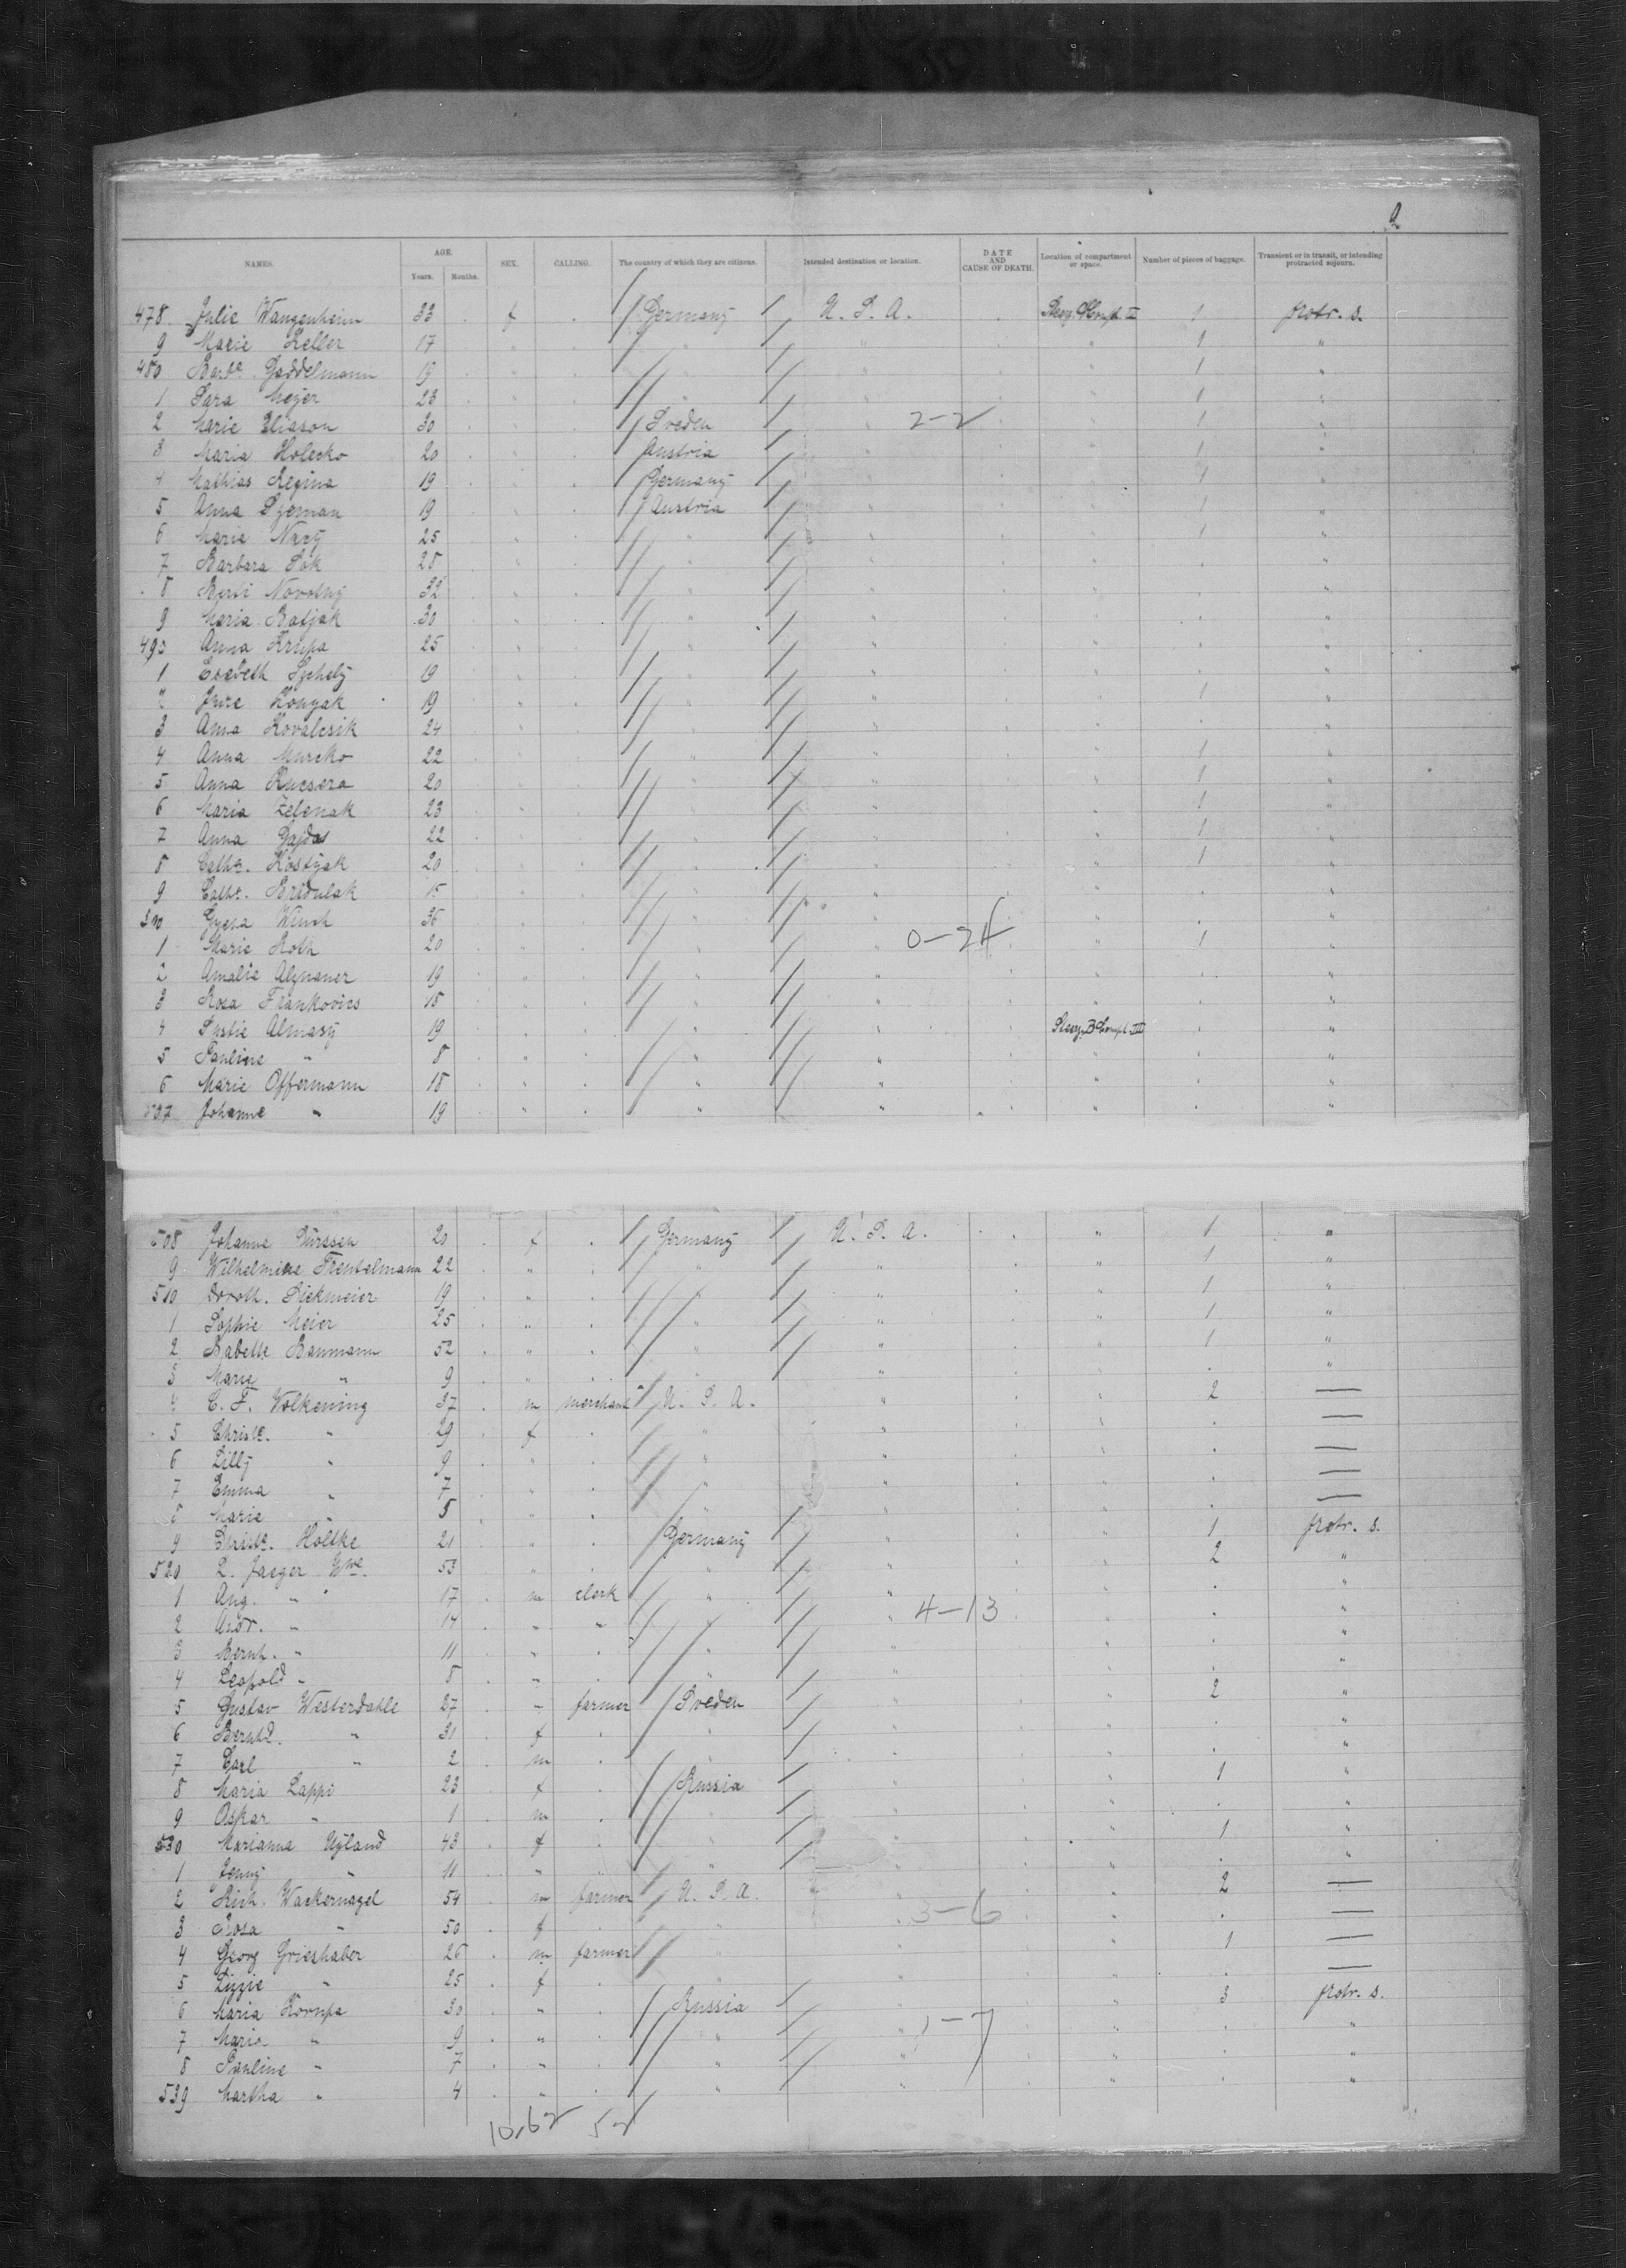 9
NAMES. AGE. Years. Months. SEX. CALLING. The country of which they are citizens. Intended destination or location. DATE AND CAUSE OF DEATH. Location of compartment or space. Number of pieces of baggage. Transient or in transit, or intending protracted sojourn.
478. Julie Wangenheim 33 f Germany U. S. A. Steeg. Compt. II 1 protr. s.
9 Marie Keller 17 " " " 1 "
480 Barbe. Gaddelmann 19 " 1 "
1 Sara Meyer 23 " " " 1 "
2 Marie Eliason 30 Sweden " 2-2 1 "
3 Maria Holecko 20 Austria " 1 "
4 Mathias Regina 19 Germany " 1 "
5 Anna Szeman 19 Austria " 1 "
6 Maria Nagy 25 " " 1 "
7 Barbara Sok 28 " " "
8 Berti Novotny 32 " " "
9 Maria Batjak 30 " " "
490 Anna Krupa 25 " " "
1 Erzebeth Szehely 19 " " "
2 Imre Konyak 19 " " 1 "
3 Anna Kovalcsik 24 " " "
4 Anna Murcko 22 " " 1 "
5 Anna Kucsera 20 " " 1 "
6 Maria Zelenak 23 " " 1 "
7 Anna Gajdos 22 " " 1 "
8 Cathr. Kostyak 20 " " 1 "
9 Cathr. Bridulak 15 " " "
500 Winch 36 " " "
1 Marie Roth 20 " " 0-24 1 "
2 Amalie 19 " " "
3 Rosa Frankovics 18 " " "
4 Almasy 19 " " Steeg. B Compt. III "
5 Pauline " 8 " " "
6 Marie Offermann 18 " " "
507 Johanne " 19 " " "
508 Johanne Dürssen 20 f Germany U. S. A. " 1 "
9 Wilhelmine Frentelmann 22 " " " " 1 "
510 Doroth. Diekmeier 19 " " " " 1 "
1 Sophie Meier 25 " " " " 1 "
2 Babette Baumann 52 " " " " 1 "
3 Marie " 9 " " " "
4 C. F. Wolkening 37 m merchant U. S. A. " " 2 —
5 Christe. " 29 f " " " —
6 Lilly " 9 " " " " —
7 Emma " 7 " " " " —
8 Marie " 5 " " " " —
9 Holtke 21 " Germany " " 1 protr. s.
520 L. Jaeger Wwe. 53 " " " " 2 "
1 Aug. " 17 m clerk " " "
2 Andr. " 14 " " " " 4-13 "
3 Bernh. " 11 " " " "
4 Leopold " 8 " " " "
5 Gustav Westerdahle 27 " farmer Sweden " " 2 "
6 Bernhd. " 31 f " " " "
7 Carl " 2 m " " "
8 Maria Lappi 23 f Russia " " 1 "
9 Oskar " 1 m " " " "
530 Marianna Nyland 43 f " " " 1 "
1 Jenny " 11 " " " "
2 Rich. Wackernagel 54 m farmer U. S. A. " " 2 —
3 Rosa " 50 f " " 3-6 —
4 Georg Grieshaber 26 m farmer " " " 1 —
5 Lizzie " 25 f " " —
6 Maria Korupa 30 " Russia " " 3 protr. s.
7 Maria " 9 " " " 1-7 "
8 Pauline " 7 " " " " "
539 Martha " 4 " " " " "
10,62 52